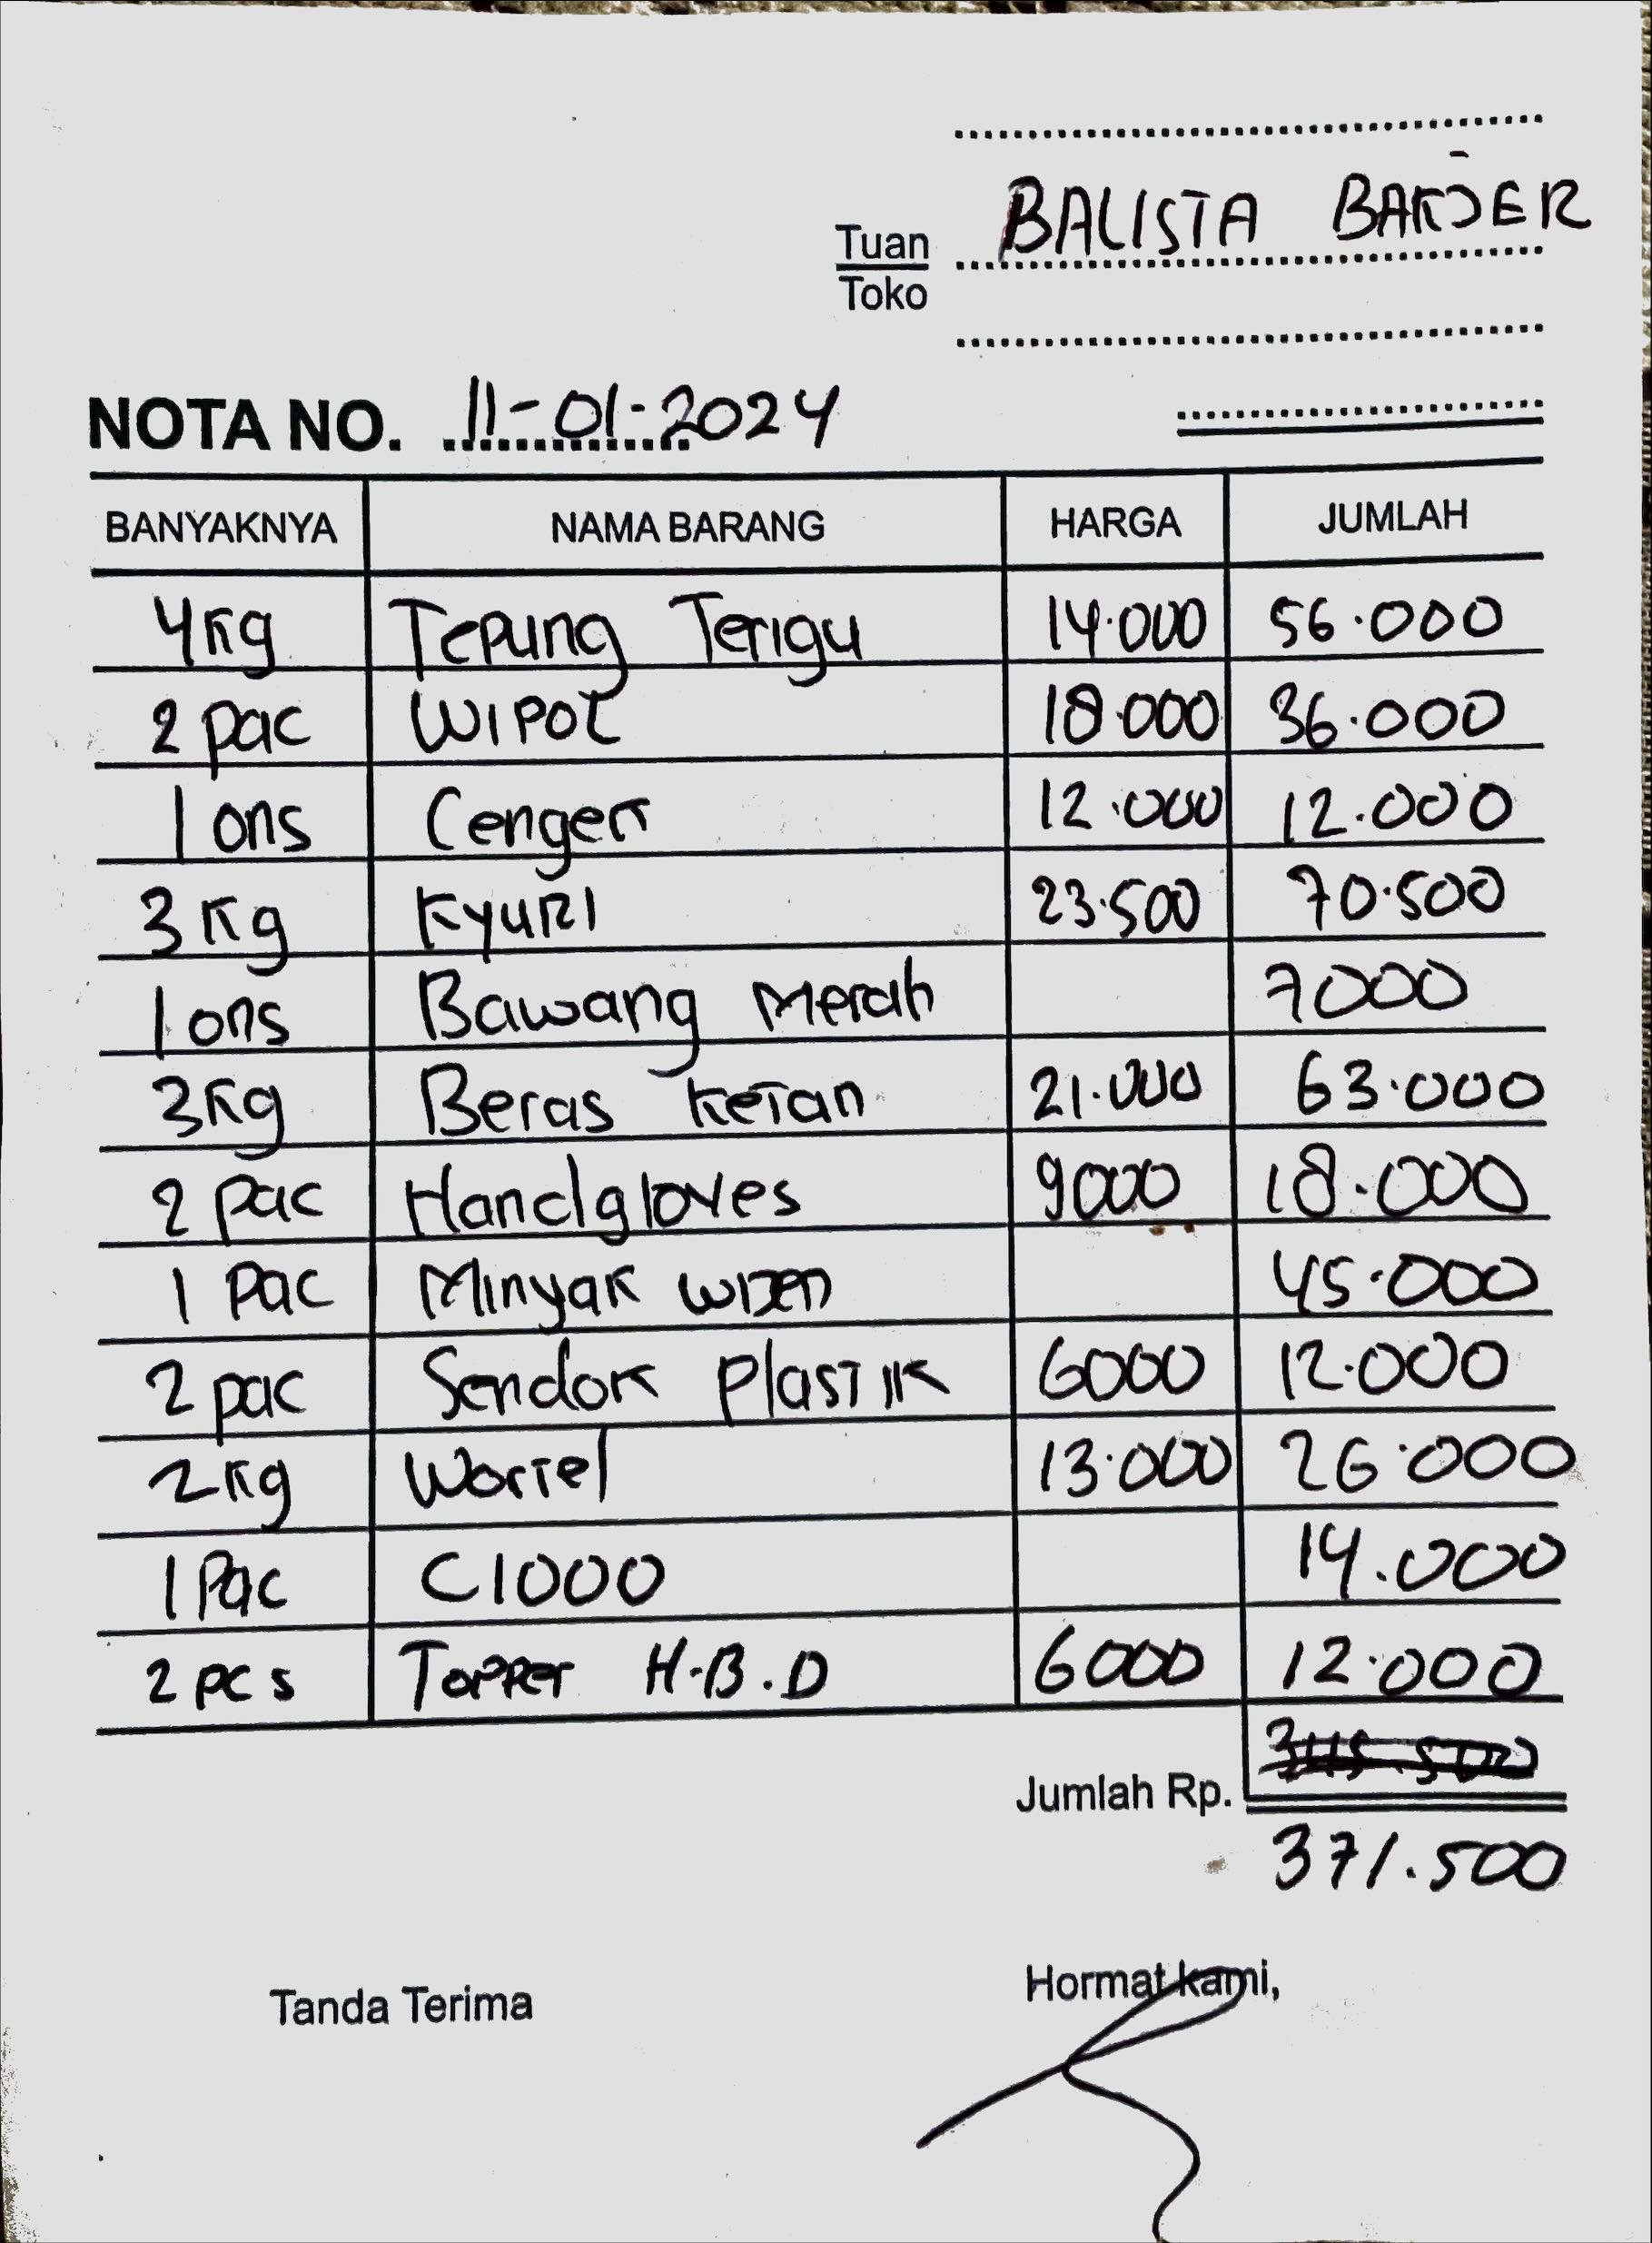 Tuan
Toko
BALISTA
NOTA NO. 11-01-2024
BANYAKNYA NAMA BARANG HARGA JUMLAH
4Kg Tepung Terigu 14.000 56.000
2 pac WIPOL 18.000 36.000
1 ons Cengek 12.000 12.000
3 Kg KYURI 23.500 70.500
1 ons Bawang Merah 7000
3Kg Beras Ketan 21.000 63.000
2 pac Handgloves 9000 18.000
1 Pac Minyak wijen 45.000
2 pac Sendok Plastik 6000 12.000
2 Kg Wortel 13.000 26.000
1 Pac C1000 14.000
2 pcs Topper H.B.D 6000 12.000
Jumlah Rp.
371.500
Tanda Terima Hormat kami,